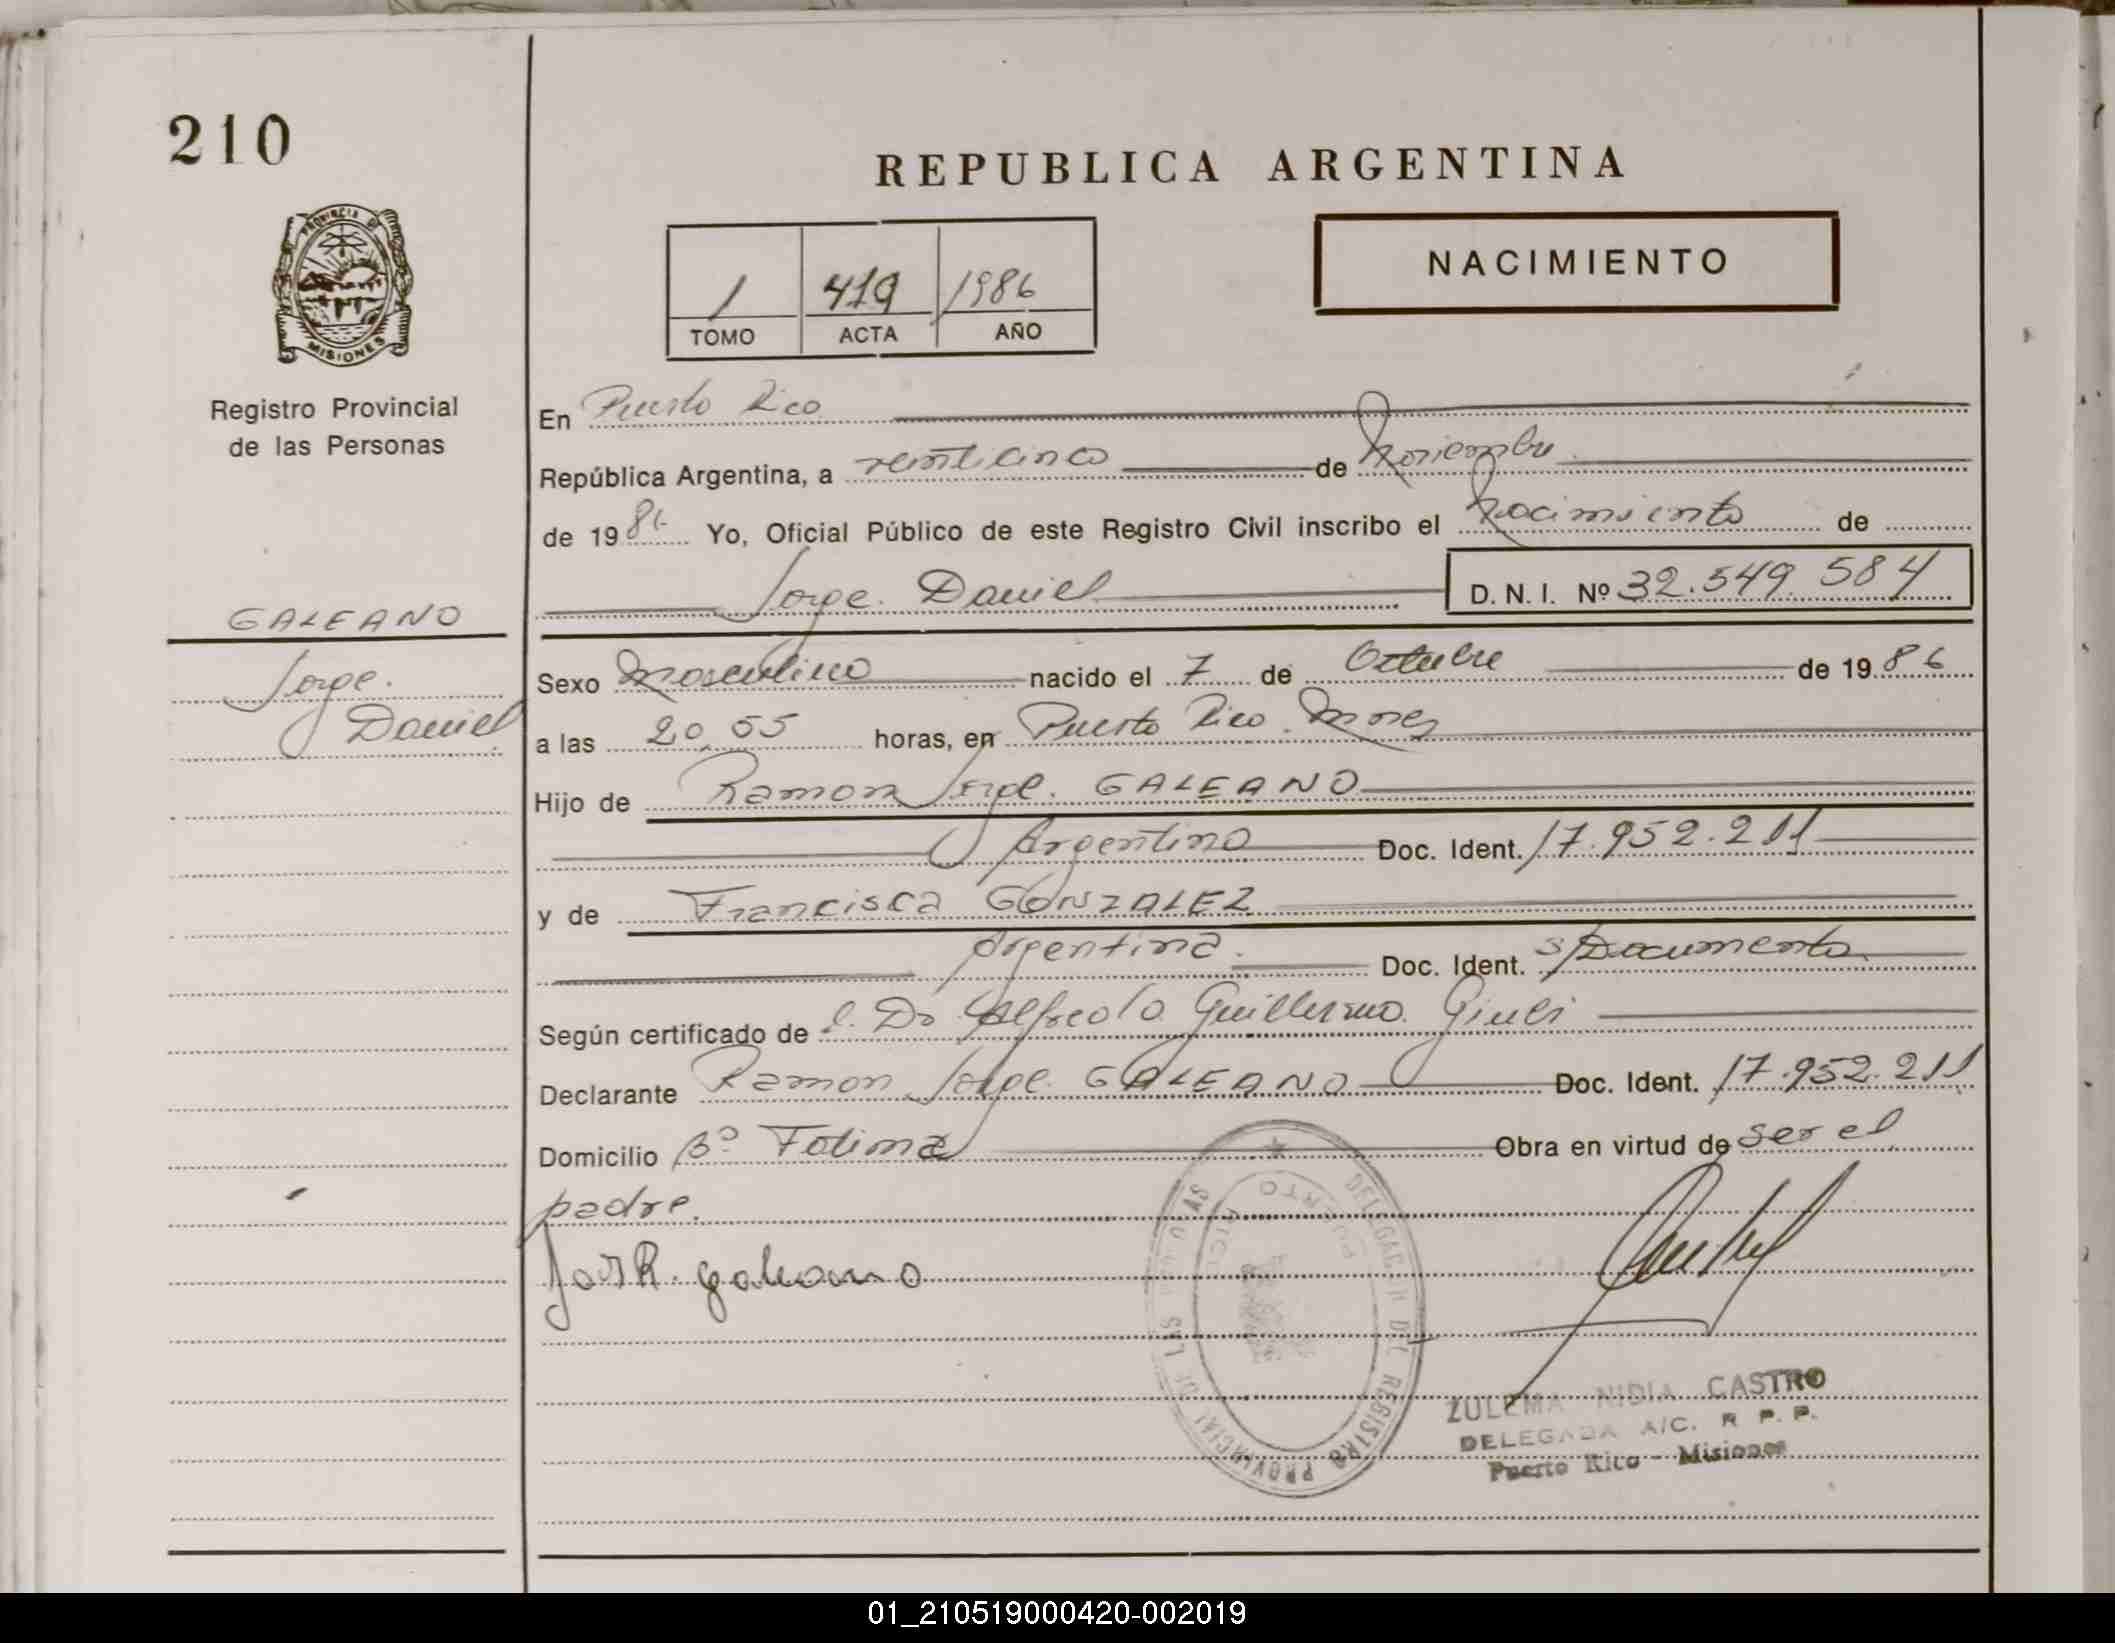 210
REPUBLICA ARGENTINA
NACIMIENTO
1 419 1986
TOMO ACTA AÑO
PROVINCIA DE
MISIONES
Registro Provincial
de las Personas
En Puerto Rico
República Argentina, a veinticinco de Noviembre
de 1986 Yo, Oficial Público de este Registro Civil inscribo el Nacimiento de
Jorge Daniel D. N. I. Nº 32.549.584
GALEANO
Jorge
Daniel
Sexo Masculino nacido el 7 de Octubre de 1986
a las 20,55 horas, en Puerto Rico Mnes
Hijo de Ramon Jorge GALEANO
Argentino Doc. Ident. 17.952.211
y de Francisca GONZALEZ
Argentina. Doc. Ident. s/Documento
Según certificado de Dr Alfredo Guillermo
Declarante Ramon Jorge GALEANO Doc. Ident. 17.952.211
Domicilio Bº Fatima Obra en virtud de ser el
padre.
galeano
PUERTO RICO
REGISTRO PROVINCIAL DE LAS
ZULEMA NIDIA CASTRO
DELEGADA A/C. R P. P.
Puerto Rico - Misiones
01_210519000420-002019